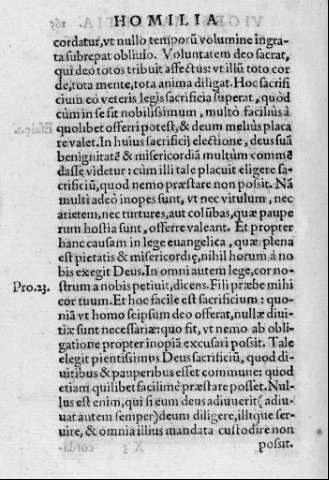 HOMILIA
cordatur, vt nullo temporū volumine ingra-
ta subrepat obliuio. Voluntatem deo sacrat,
qui deo totos tribuit affectus: vt illū toto cor
de, tota mente, tota anima diligat. Hoc sacrifi
cium eò veteris legis sacrificia superat, quòd
cùm in se sit nobilissimum, multò faciliùs à
quolibet offerri potest, & deum meliùs placa
re valet. In huius sacrificij electione, deus suā
benignitatē & misericordiā multùm commē
dasse videtur: cùm illi tale placuit eligere sa-
crificiū, quod nemo præstare non possit. Nā
multi adeò inopes sunt, vt nec vitulum, nec
arietem, nec turtures, aut colūbas, quæ paupe
rum hostia sunt, offerre valeant. Et propter
hanc causam in lege euangelica, quæ plena
est pietatis & misericordię, nihil horum à no
bis exegit Deus. In omni autem lege, cor no-
Pro.23. strum à nobis petiuit, dicens. Fili præbe mihi
cor tuum. Et hoc facile est sacrificium: quo-
niā vt homo seipsum deo offerat, nullæ diui-
tiæ sunt necessariæ: quo fit, vt nemo ab obli-
gatione propter inopiā excusari possit. Tale
elegit pientissimus Deus sacrificiū, quod di-
uitibus & pauperibus esset commune: quod
etiam quilibet facilimè præstare posset. Nul-
lus est enim, qui si eum deus adiuuerit (adiu-
uat autem semper) deum diligere, illique ser-
uire, & omnia illius mandata custodire non
possit.